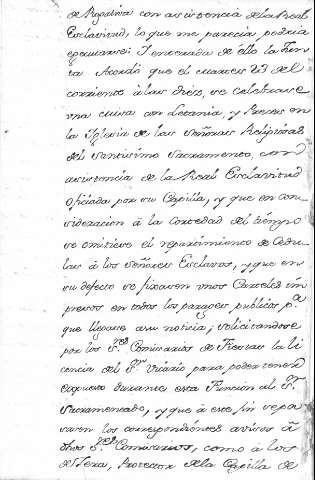 de Rogativa con asistencia de la Real
Esclavitud, lo que me parecia podria
egecutarse: I enterada de ello la Jun
ta Acordó que el martes 23 del
corriente á las diez, se celebrase
una misa con Letania, y Preces en
la Iglesia de las señoras Religiosas
del Santisimo Sacramento, con
asistencia de la Real Esclavitud
oficiada por su Capilla, y que en con
sideracion á la cortedad del tiempo
se omitiese el repartimiento de Cedu
las á los señores Esclavos, y que en
su defecto se fixasen unos Carteles im
presos en todos los parages publicos p.a
que llegase a su noticia, solicitandose
por los S.res Comisarios de Fiestas la li
cencia del S.r Vicario para poder tener
expuesto durante esta Funcion al S.mo
Sacramento, y que á este fin se pa
sasen los correspondientes avisos á
dhos S.res Comisarios, como á los
de Cera, Protector de la Capilla de